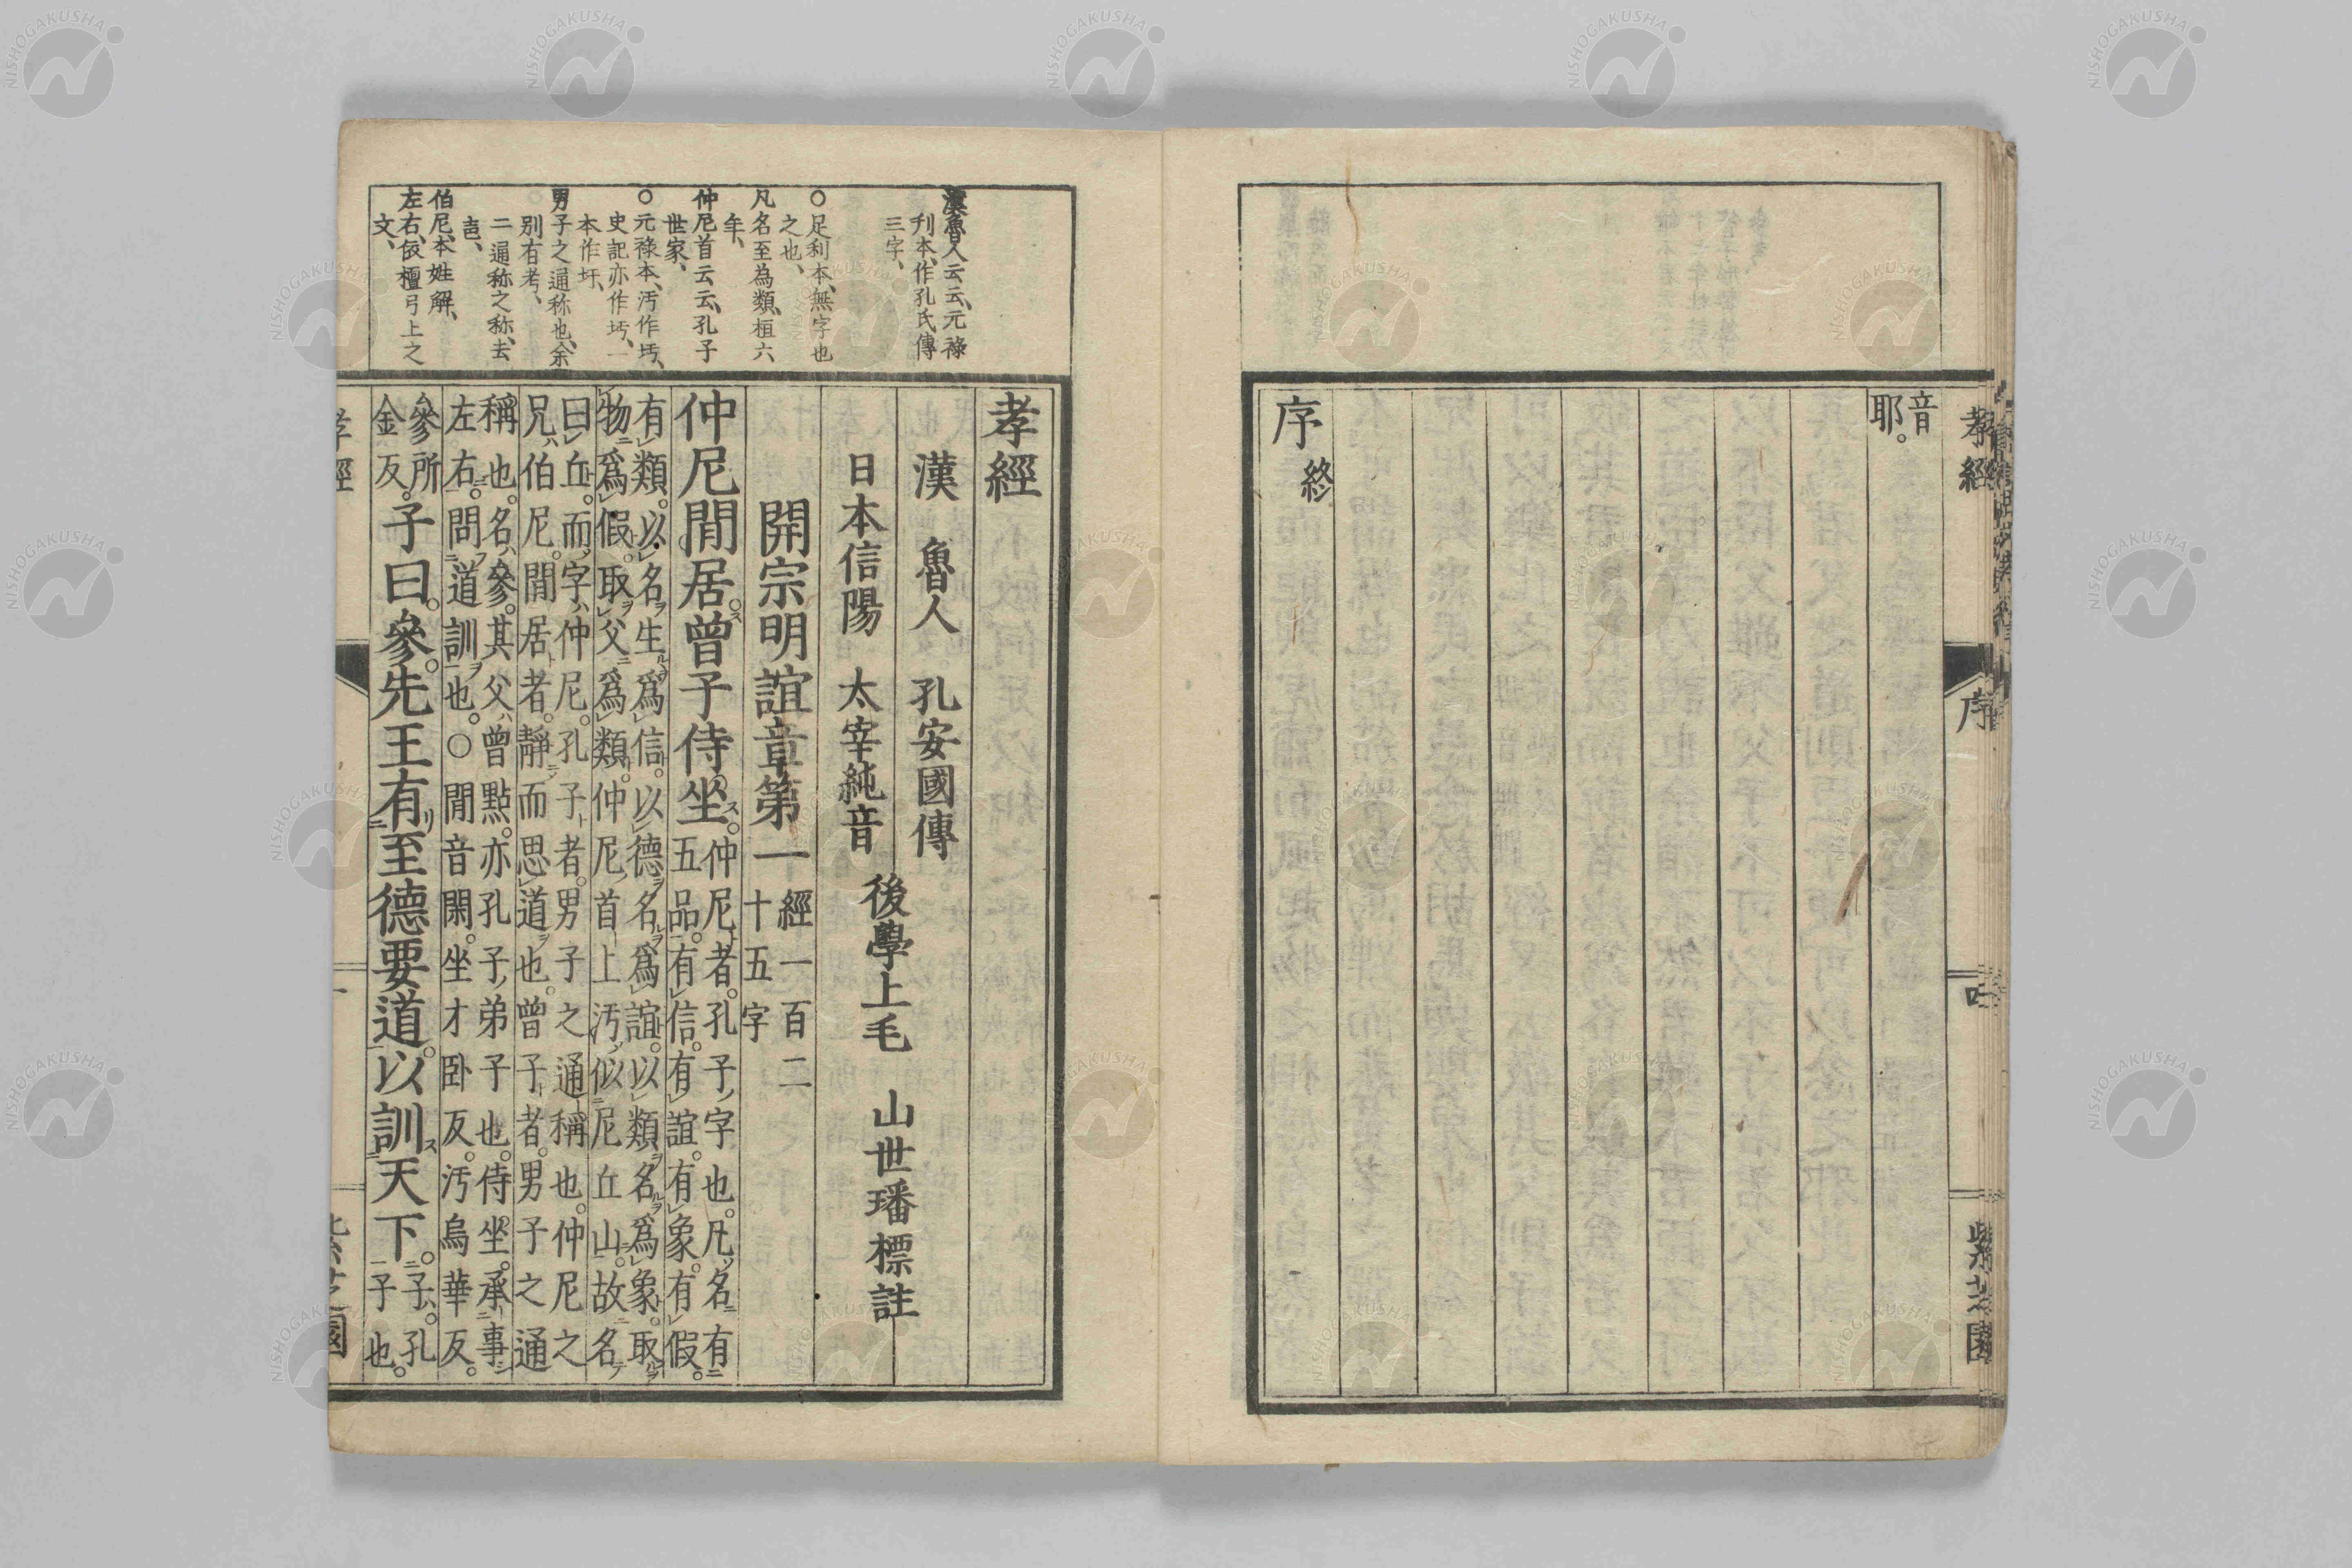 音
耶。
序終
孝經
序
紫芝園
漢魯人云云、元祿
刋本、作孔氏傳
三字、
○足利本、無字也
之也、
凡名至為類、桓六
年、
仲尼首云云、孔子
世家、
○元祿本、汚作圬、
史記亦作圬、一
本作圩、
男子之通称也、余
別有考、
二通称之称、去
声、
伯尼、本姓解、
左右、依檀弓上之
文、
孝經
漢　魯人　孔安國傳
日本信陽　太宰純音
後學上毛　山世璠標註
開宗明誼章第一 經一百二
十五字
仲尼閒居。曾子侍坐。仲尼者。孔子字也。凡名有
五品。有信。有誼。有象。有假。
有類。以名生爲信。以德名爲誼。以類名爲象。取
物爲假。取父爲類。仲尼首上汚似尼丘山。故名
曰丘。而字仲尼。孔子者。男子之通稱也。仲尼之
兄伯尼。閒居者。靜而思道也。曾子者。男子之通
稱也。名參。其父曾點。亦孔子弟子也。侍坐。承事
左右。問道訓也。○閒音閑。坐才卧反。汚烏華反。
參所
金反。子曰。參。先王有至德要道。以訓天下。子。孔
子也。
孝經
紫芝園
NISHOGAKUSHA